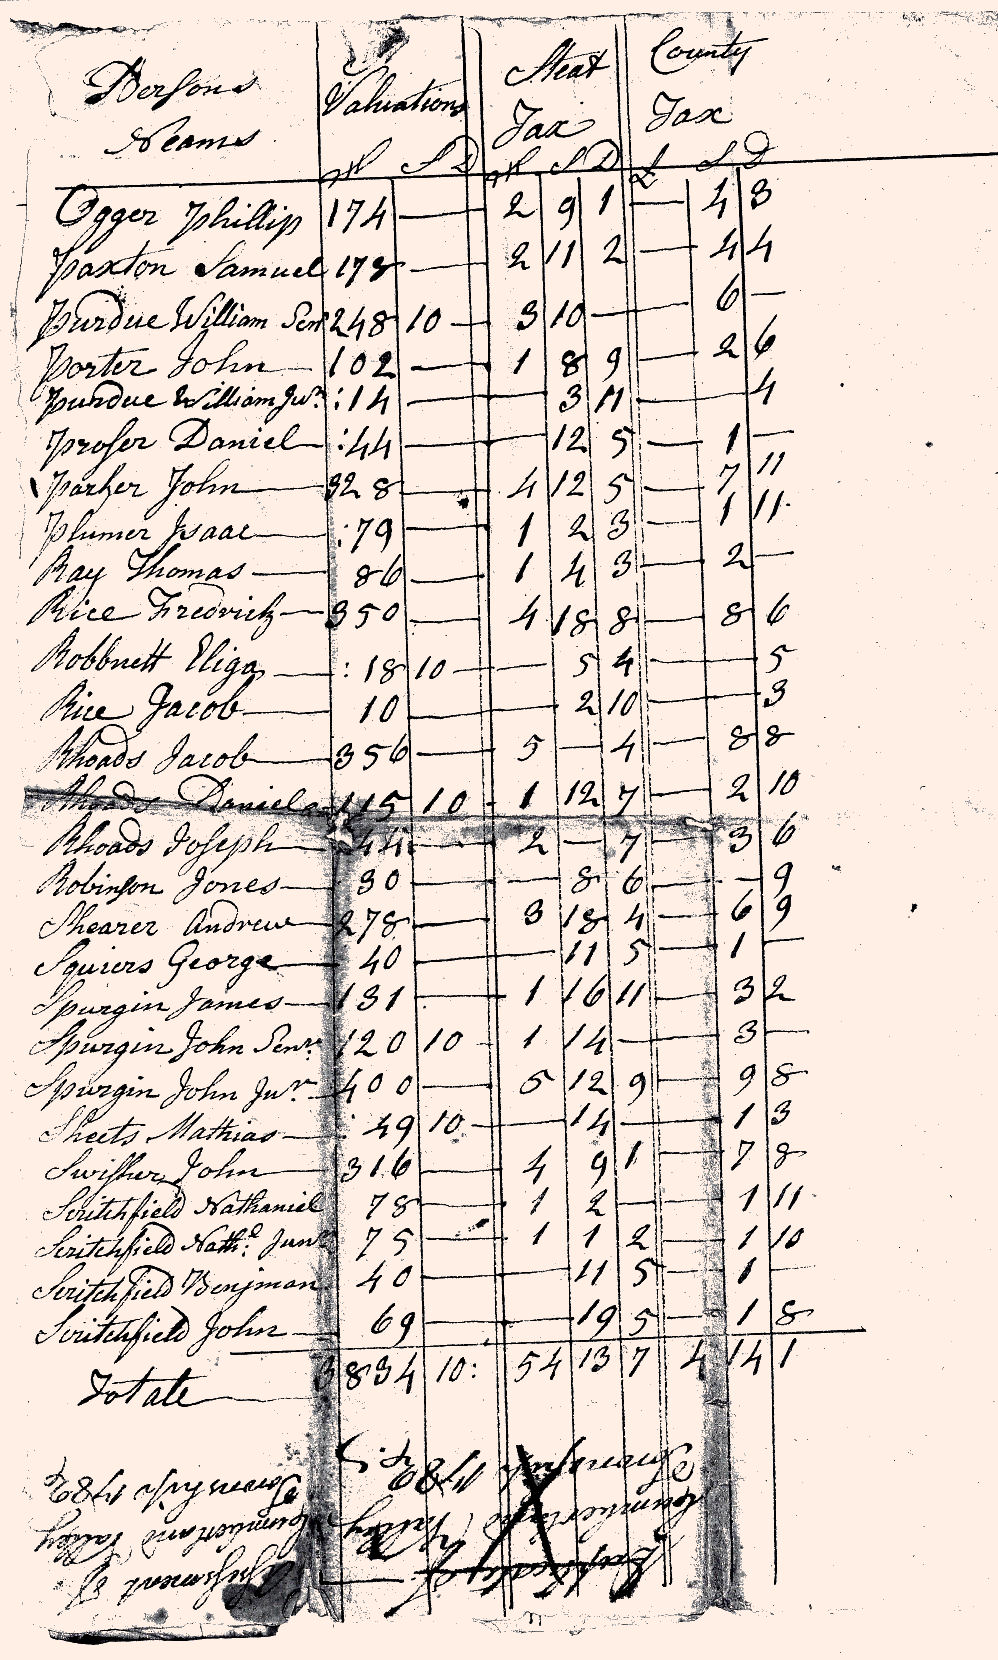 Persons Neams Valuations Steat Tax County Tax
£ S D £ S D £ S D
Ogger Phillip 174 — 2 9 1 — 4 3
Paxton Samuel 178 — 2 11 2 — 4 4
Purdue William Senr 248 10 — 3 10 — — 6 —
Porter John — 102 — 1 8 9 — 2 6
Purdue William Junr. :14 — 3 11 4
Proser Daniel — :44 — 12 5 — 1 —
Parker John — 328 — 4 12 5 — 7 11
Plumer Isaac — :79 — 1 2 3 — 1 11
Ray Thomas — 86 — 1 4 3 — 2 —
Rice Fredrick — 350 — 4 18 8 — 8 6
Robbnett Eliga — :18 10 — — 5 4 — 5
Rice Jacob — 10 — 2 10 — 3
Rhoads Jacob — 356 — 5 — 4 — 8 8
Rhoads Daniel 115 10 - 1 12 7 — 2 10
Rhoads Joseph — 44 — 2 — 7 — 3 6
Robinson Jones — 30 — — 8 6 — — 9
Shearer Andrew — 278 — 3 18 4 — 6 9
Squiers George — 40 — 11 5 — 1 —
Spurgin James — 131 — 1 16 11 — 3 2
Spurgin John Senr. 120 10 - 1 14 — 3 —
Spurgin John Jur. 400 — 5 12 9 — 9 8
Sheets Mathias — : 49 10 — — 14 — 1 3
Swisher John — 316 — 4 9 1 — 7 8
Scritchfield Nathaniel 78 — 1 2 — 1 11
Scritchfield Nathd: Junr 75 — 1 1 2 — 1 10
Scritchfield Benjman 40 — 11 5 — 1 —
Scritchfield John — 69 — 19 5 — 1 8
Totale — 3834 10: 54 13 7 4 14 1
Assesment of
Cumberland Valley
Townships 1782
Cumberland Valley
Township 1782